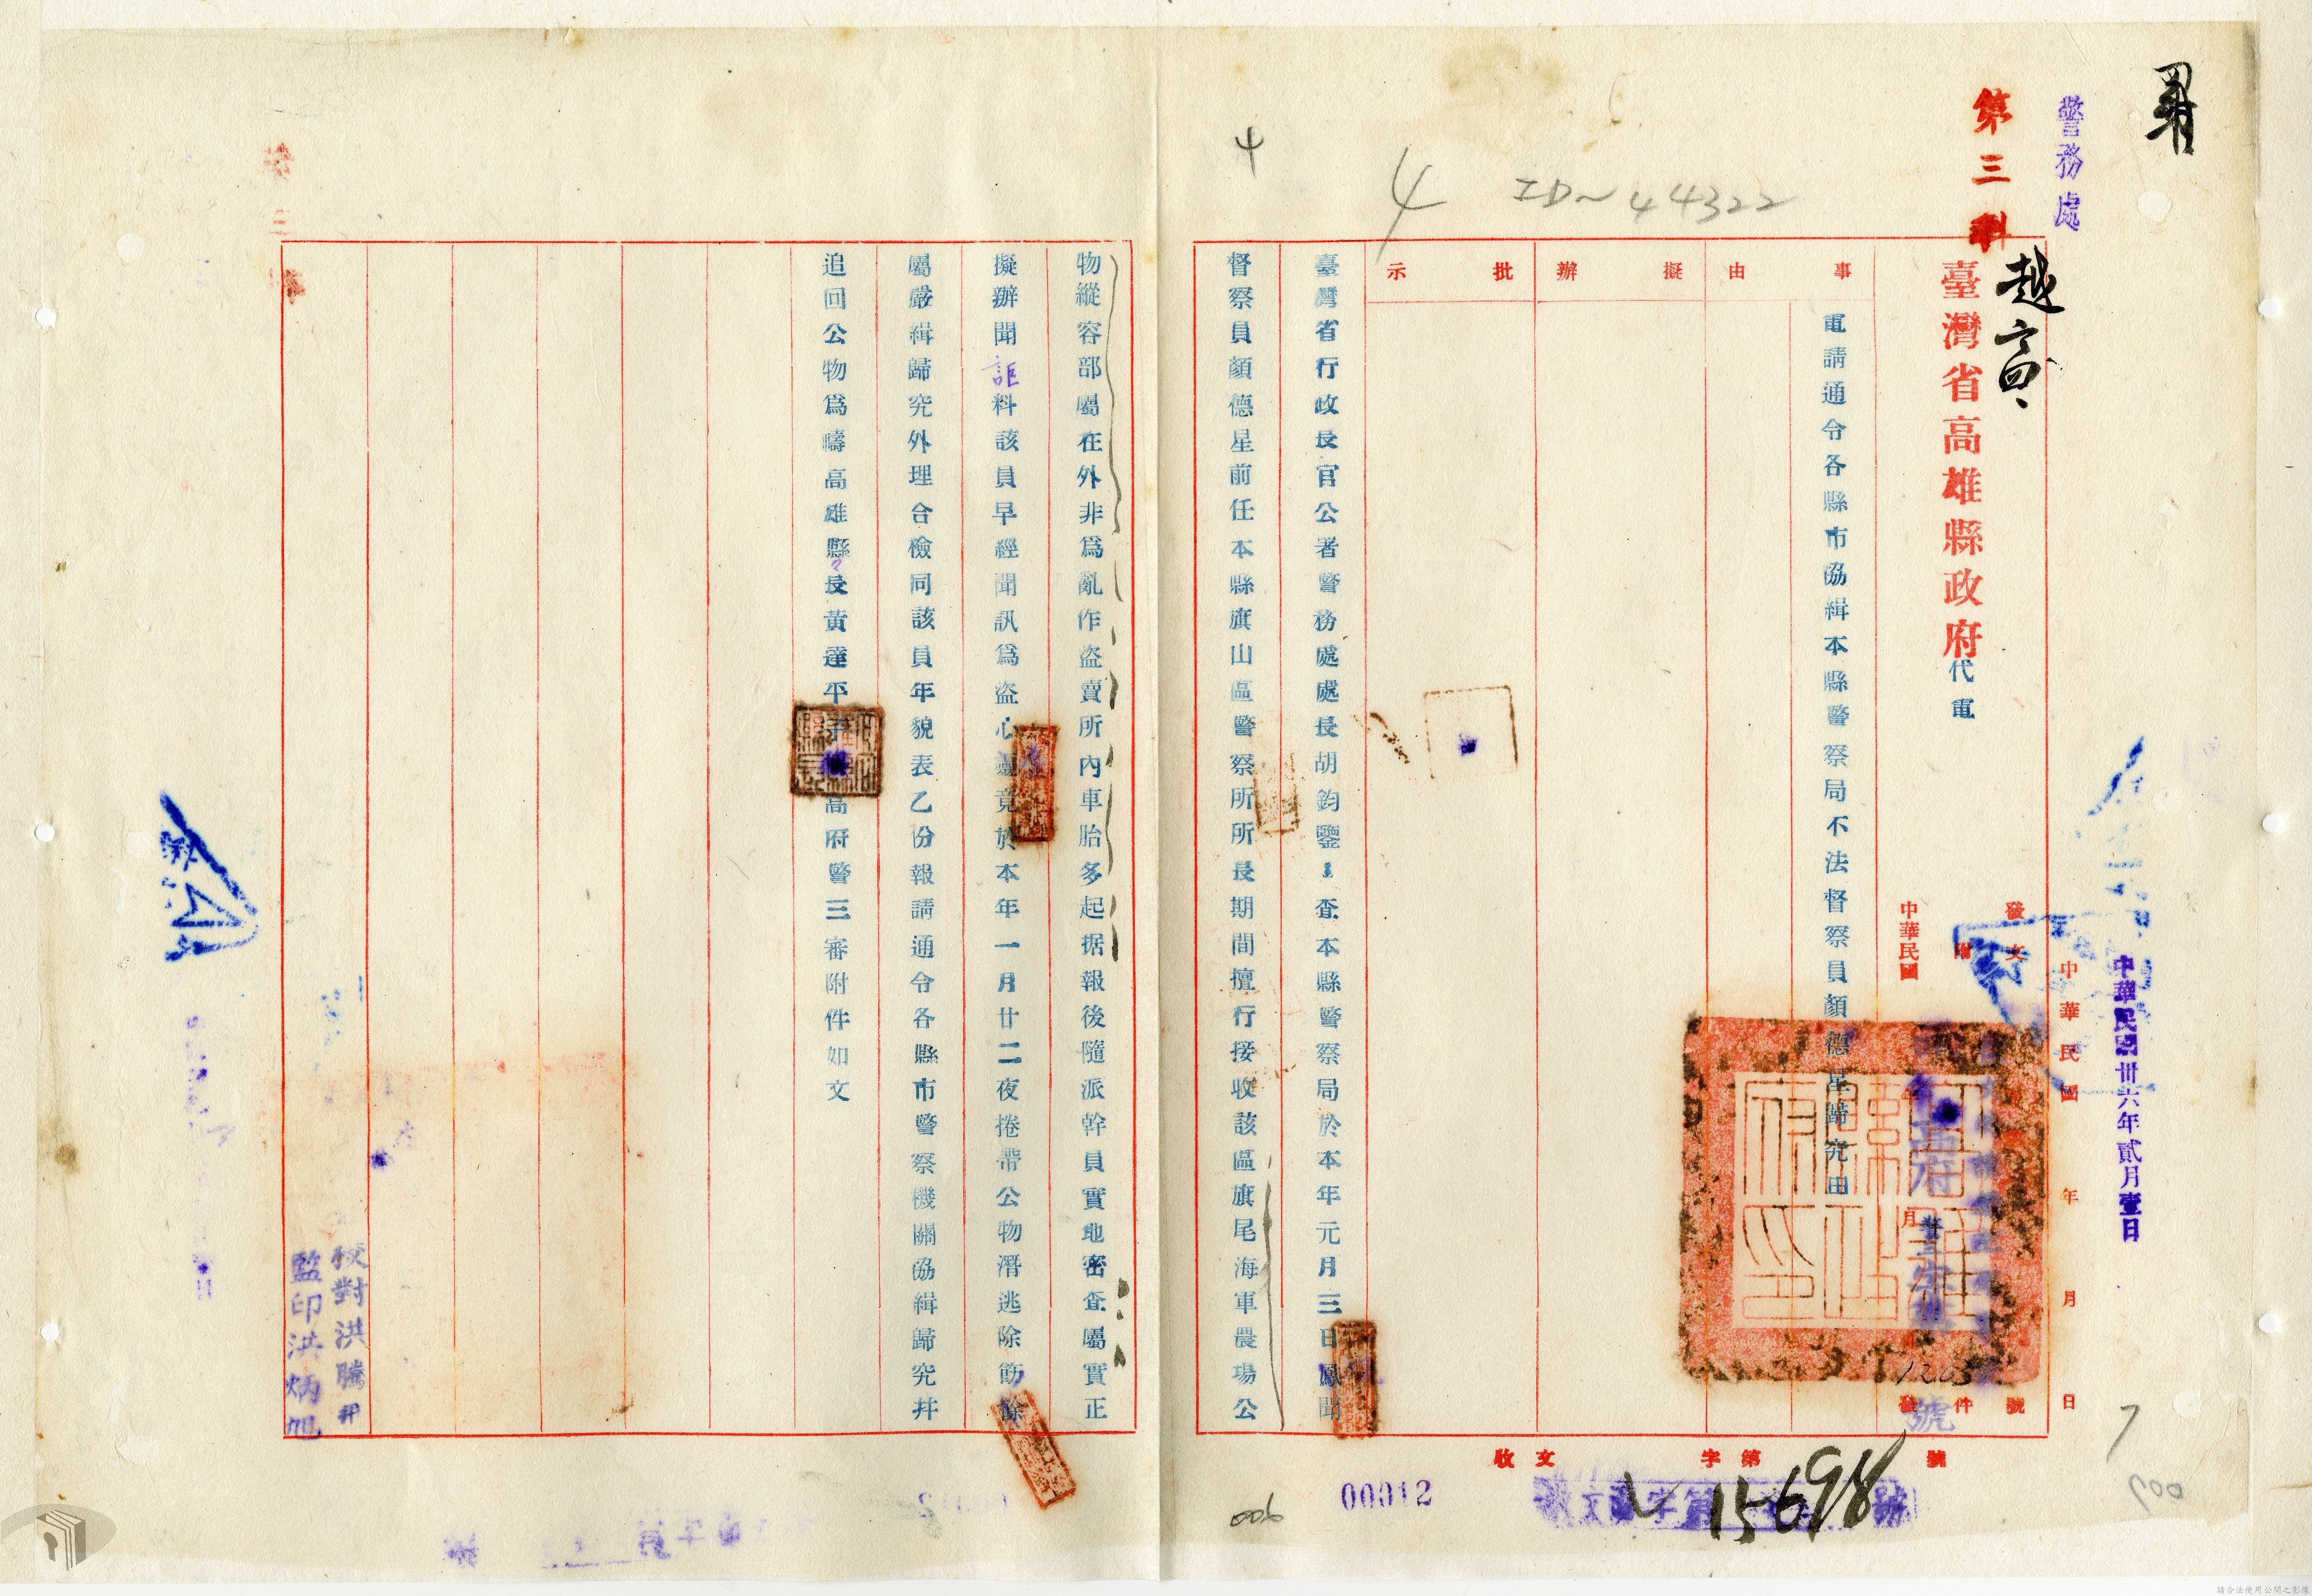 警務處
第三科
臺灣省高雄縣政府
代電
中華民國卅六年貳月壹日
中華民國 年 月 日
發文 號
附 件
中華民國 月
高府警
1203
號
事由
擬辦
批示
電請通令各縣市協緝本縣警察局不法督察員顏德星歸究由
臺灣省行政長官公署警務處處長胡鈞鑒:查本縣警察局於本年元月三日鳳聞
督察員顏德星前任本縣旗山區警察所所長期間擅行接收該區旗尾海軍農場公
物縱容部屬在外非爲亂作盜賣所內車胎多起据報後隨派幹員實地密查屬實正
擬辦聞詎料該員早經聞訊爲盜心竟於本年一月廿二夜捲帶公物潛逃除飭
屬嚴緝歸究外理合檢同該員年貌表乙份報請通令各縣市警察機關協緝歸究并
追回公物爲禱高雄縣々長黃達平高府警三審附件如文
校對洪騰
監印洪炳旭
收文 字第 號
15698
00012
006
4
4 ID~44322
7
請合法使用公開之影像